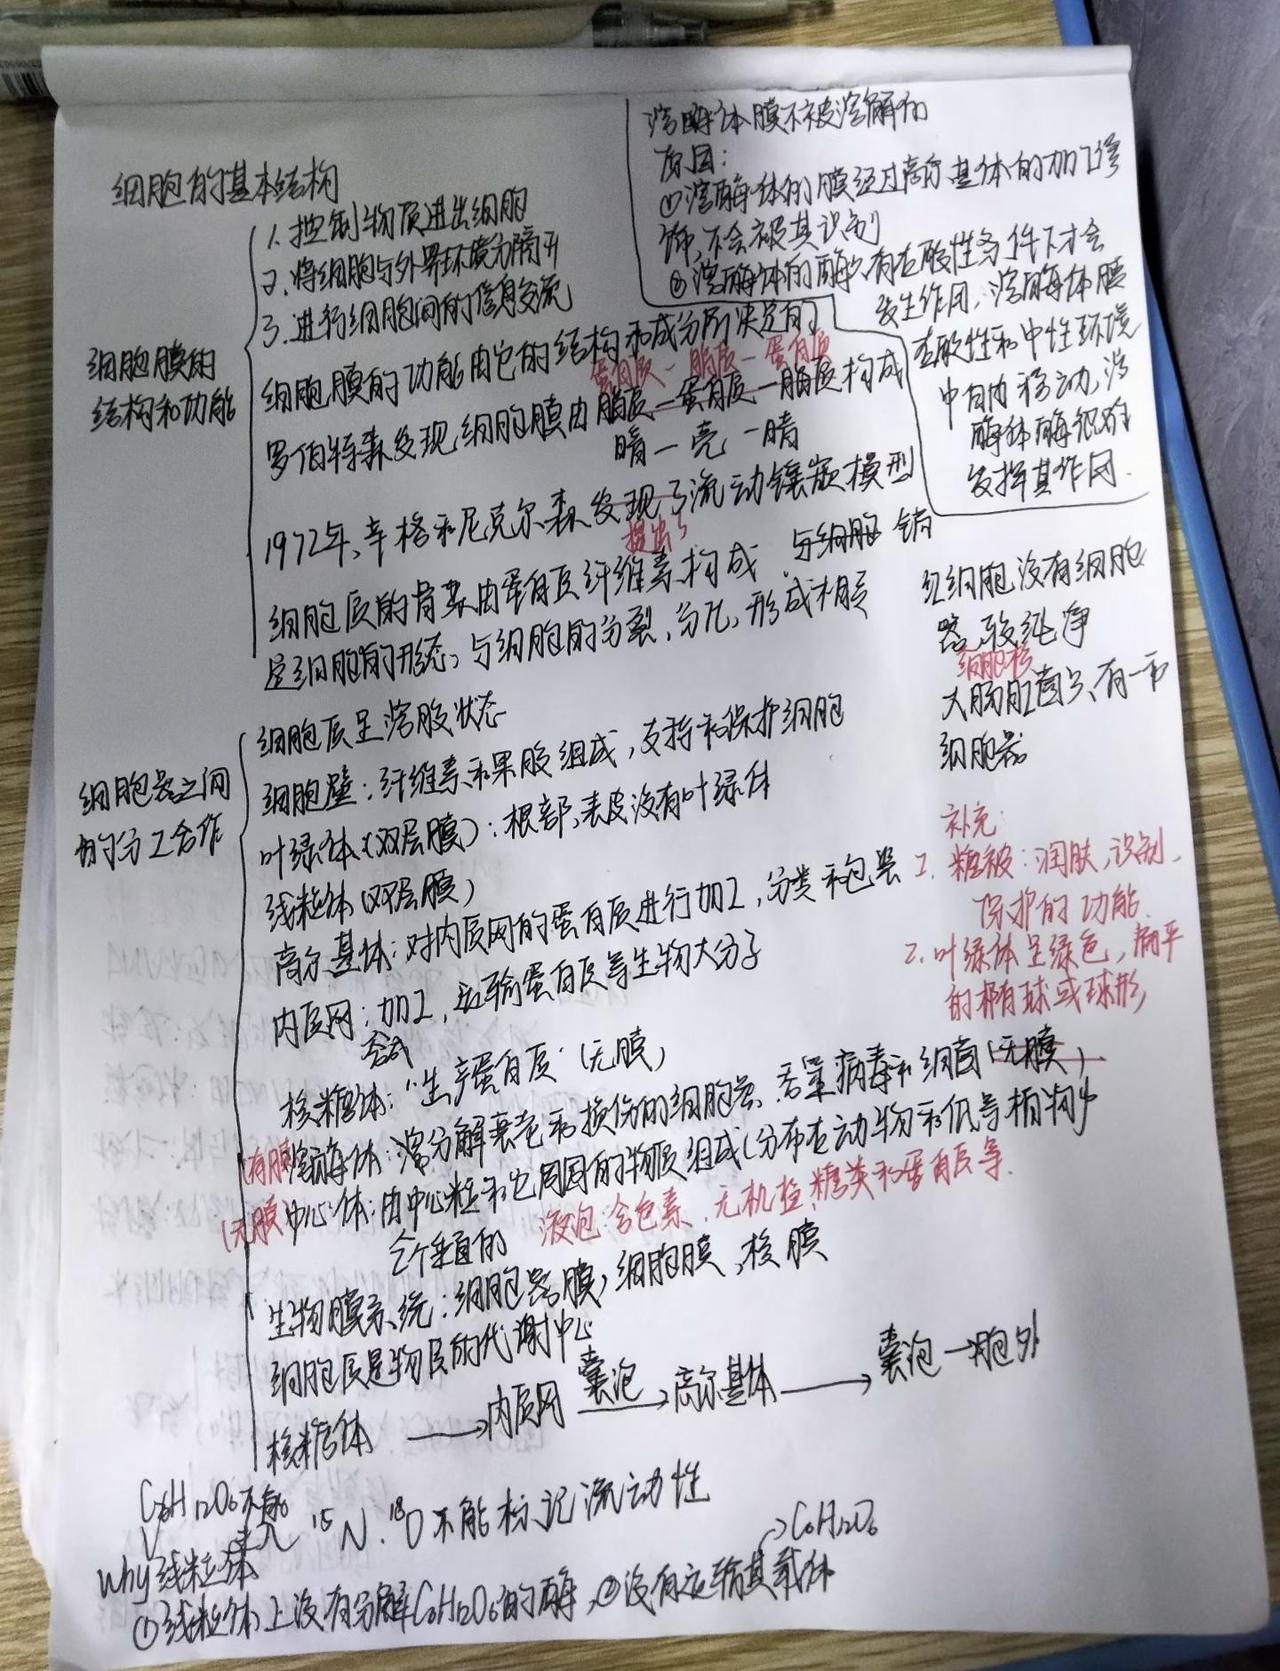 溶酶体膜不被溶解的
原因:
①溶酶体的膜经过高尔基体的加工修
饰,不会被其识别
②溶酶体的酶只有在酸性条件下才会
发生作用,溶酶体膜
在酸性和中性环境
中自由移动,溶
酶体酶很难
发挥其作用.
细胞的基本结构
细胞膜的
结构和功能
1.控制物质进出细胞
2.将细胞与外界环境分隔开
3.进行细胞间的信息交流
细胞膜的功能由它的结构和成分所决定的
蛋白质-脂质-蛋白质
罗伯特森发现,细胞膜由脂质-蛋白质-脂质构成
暗-亮-暗
1972年,辛格和尼克尔森发现了流动镶嵌模型
提出了
细胞质的骨架由蛋白质纤维素构成,与细胞 锚
定细胞的形态,与细胞的分裂,分化,形成相关
红细胞没有细胞
器,较纯净
细胞核
大肠杆菌只有一种
细胞器
细胞器之间
的分工合作
细胞质呈溶胶状态
细胞壁:纤维素和果胶组成,支持和保护细胞
叶绿体(双层膜):根部,表皮没有叶绿体
线粒体(双层膜)
高尔基体:对内质网的蛋白质进行加工,分类和包装
内质网:加工,运输蛋白质等生物大分子
合成
核糖体:"生产蛋白质"(无膜)
(有膜)溶酶体:溶分解衰老和损伤的细胞器,吞噬病毒和细菌(无膜)
(无膜)中心体:由中心粒和它周围的物质组成(分布在动物和低等植物中
2个垂直的
液泡:含色素、无机盐、糖类和蛋白质等.
补充:
1.糖被:润肤,识别,
保护的功能.
2.叶绿体呈绿色,扁平
的椭球或球形
生物膜系统:细胞器膜,细胞膜,核膜
细胞质是物质的代谢中心
核糖体 → 内质网 囊泡→ 高尔基体 → 囊泡→胞外
C6H12O6不能
进入
¹⁵N.¹⁸O不能标记流动性
Why线粒体
→C6H12O6
①线粒体上没有分解C6H12O6的酶,②没有运输其载体